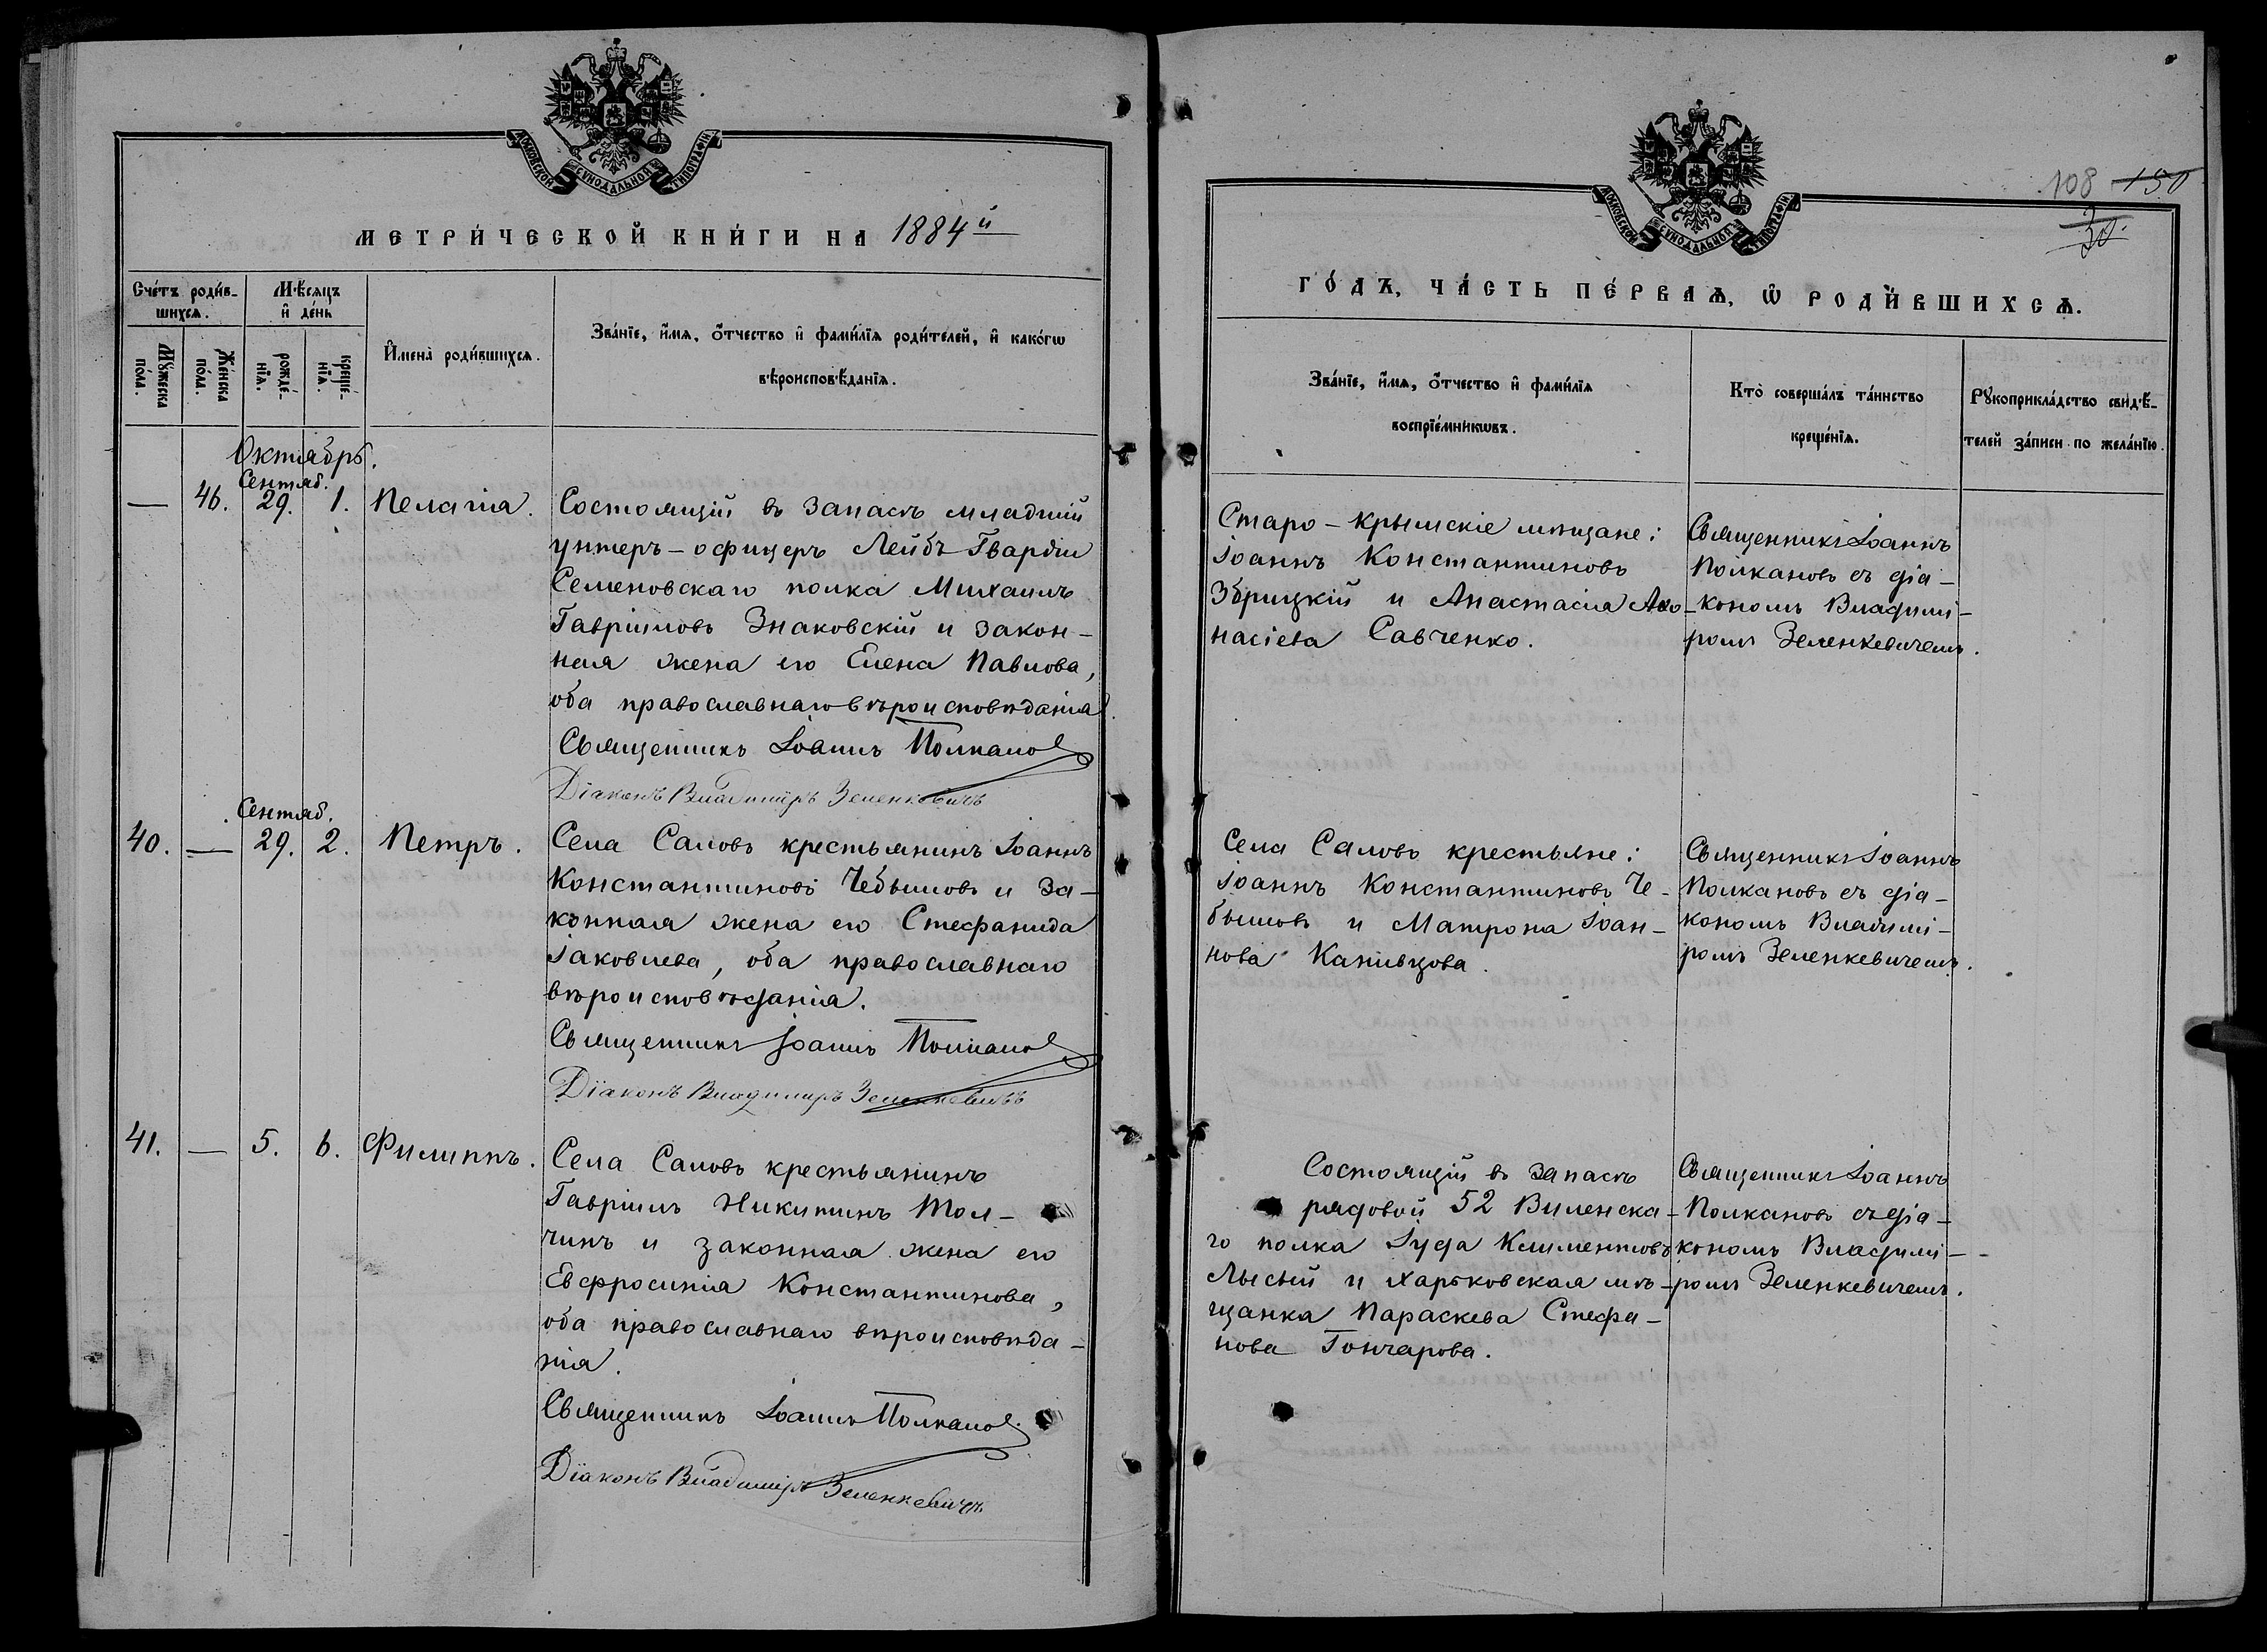 МОСКОВСКОЙ СѴНОДАЛЬНОЙ ТИПОГРАФІИ
МЕТРИ́ЧЕСКОЙ КНИ́ГИ НА 1884й
Сче́тъ роди́в-
шихсѧ.
Мѣ́сѧцъ
и҆ де́нь
Мꙋ́жеска
по́ла.
Же́нска
по́ла.
рожде́-
нїѧ.
креще́-
нїѧ.
И҆мена̀ роди́вшихсѧ.
Зва́нїе, и҆́мѧ, ѻ҆́тчество и҆ фами́лїѧ роди́телей, и҆ како́гѡ
вѣроисповѣ́данїѧ.
Октябрь.
Сентяб.
— 46. 29. 1. Пелагія.
Состоящій въ запасѣ младшій
унтеръ-офицеръ Лейбъ Гвардіи
Семеновскаго полка Михаилъ
Гавріиловъ Знаковскій и закон-
ная жена его Елена Павлова,
оба православнаго вѣроисповѣданія.
Священникъ Іоаннъ Полкановъ
Діаконъ Владиміръ Зеленкевичъ
Сентяб.
40. — 29. 2. Петръ.
Села Саловъ крестьянинъ Іоаннъ
Константиновъ Чебышовъ и за-
конная жена его Стефанида
Іаковлева, оба православнаго
вѣроисповѣданія.
Священникъ Іоаннъ Полкановъ
Діаконъ Владиміръ Зеленкевичъ
41. — 5. 6. Филиппъ.
Села Саловъ крестьянинъ
Гавріилъ Никитинъ Тол-
чинъ и законная жена его
Евфросинія Константинова,
оба православнаго вѣроисповѣда-
нія.
Священникъ Іоаннъ Полкановъ
Діаконъ Владиміръ Зеленкевичъ
МОСКОВСКОЙ СѴНОДАЛЬНОЙ ТИПОГРАФІИ
108 150
30.
ГО́ДЪ, ЧА́СТЬ ПЕ́РВАѦ, Ѡ҆ РОДИ́ВШИХСѦ.
Зва́нїе, и҆́мѧ, ѻ҆́тчество и҆ фами́лїѧ
воспрїе́мникѡвъ.
Кто̀ соверша́лъ та́инство
креще́нїѧ.
Рꙋкоприкла́дство свидѣ́-
телей за́писи по жела́нїю.
Старо-крымскіе мѣщане:
Іоаннъ Константиновъ
Збрицкій и Анастасія Аѳо-
насіева Савченко.
Священникъ Іоаннъ
Полкановъ съ діа-
кономъ Владимі-
ромъ Зеленкевичемъ.
Села Саловъ крестьяне:
Іоаннъ Константиновъ Че-
бышовъ и Матрона Іоан-
нова Канивцова.
Священникъ Іоаннъ
Полкановъ съ діа-
кономъ Владимі-
ромъ Зеленкевичемъ.
Состоящій въ запасѣ
рядовой 52 Виленска-
го полка Іуда Климентовъ
Лысый и Харьковская мѣ-
щанка Параскева Стефа-
нова Гончарова.
Священникъ Іоаннъ
Полкановъ съ діа-
кономъ Владимі-
ромъ Зеленкевичемъ.